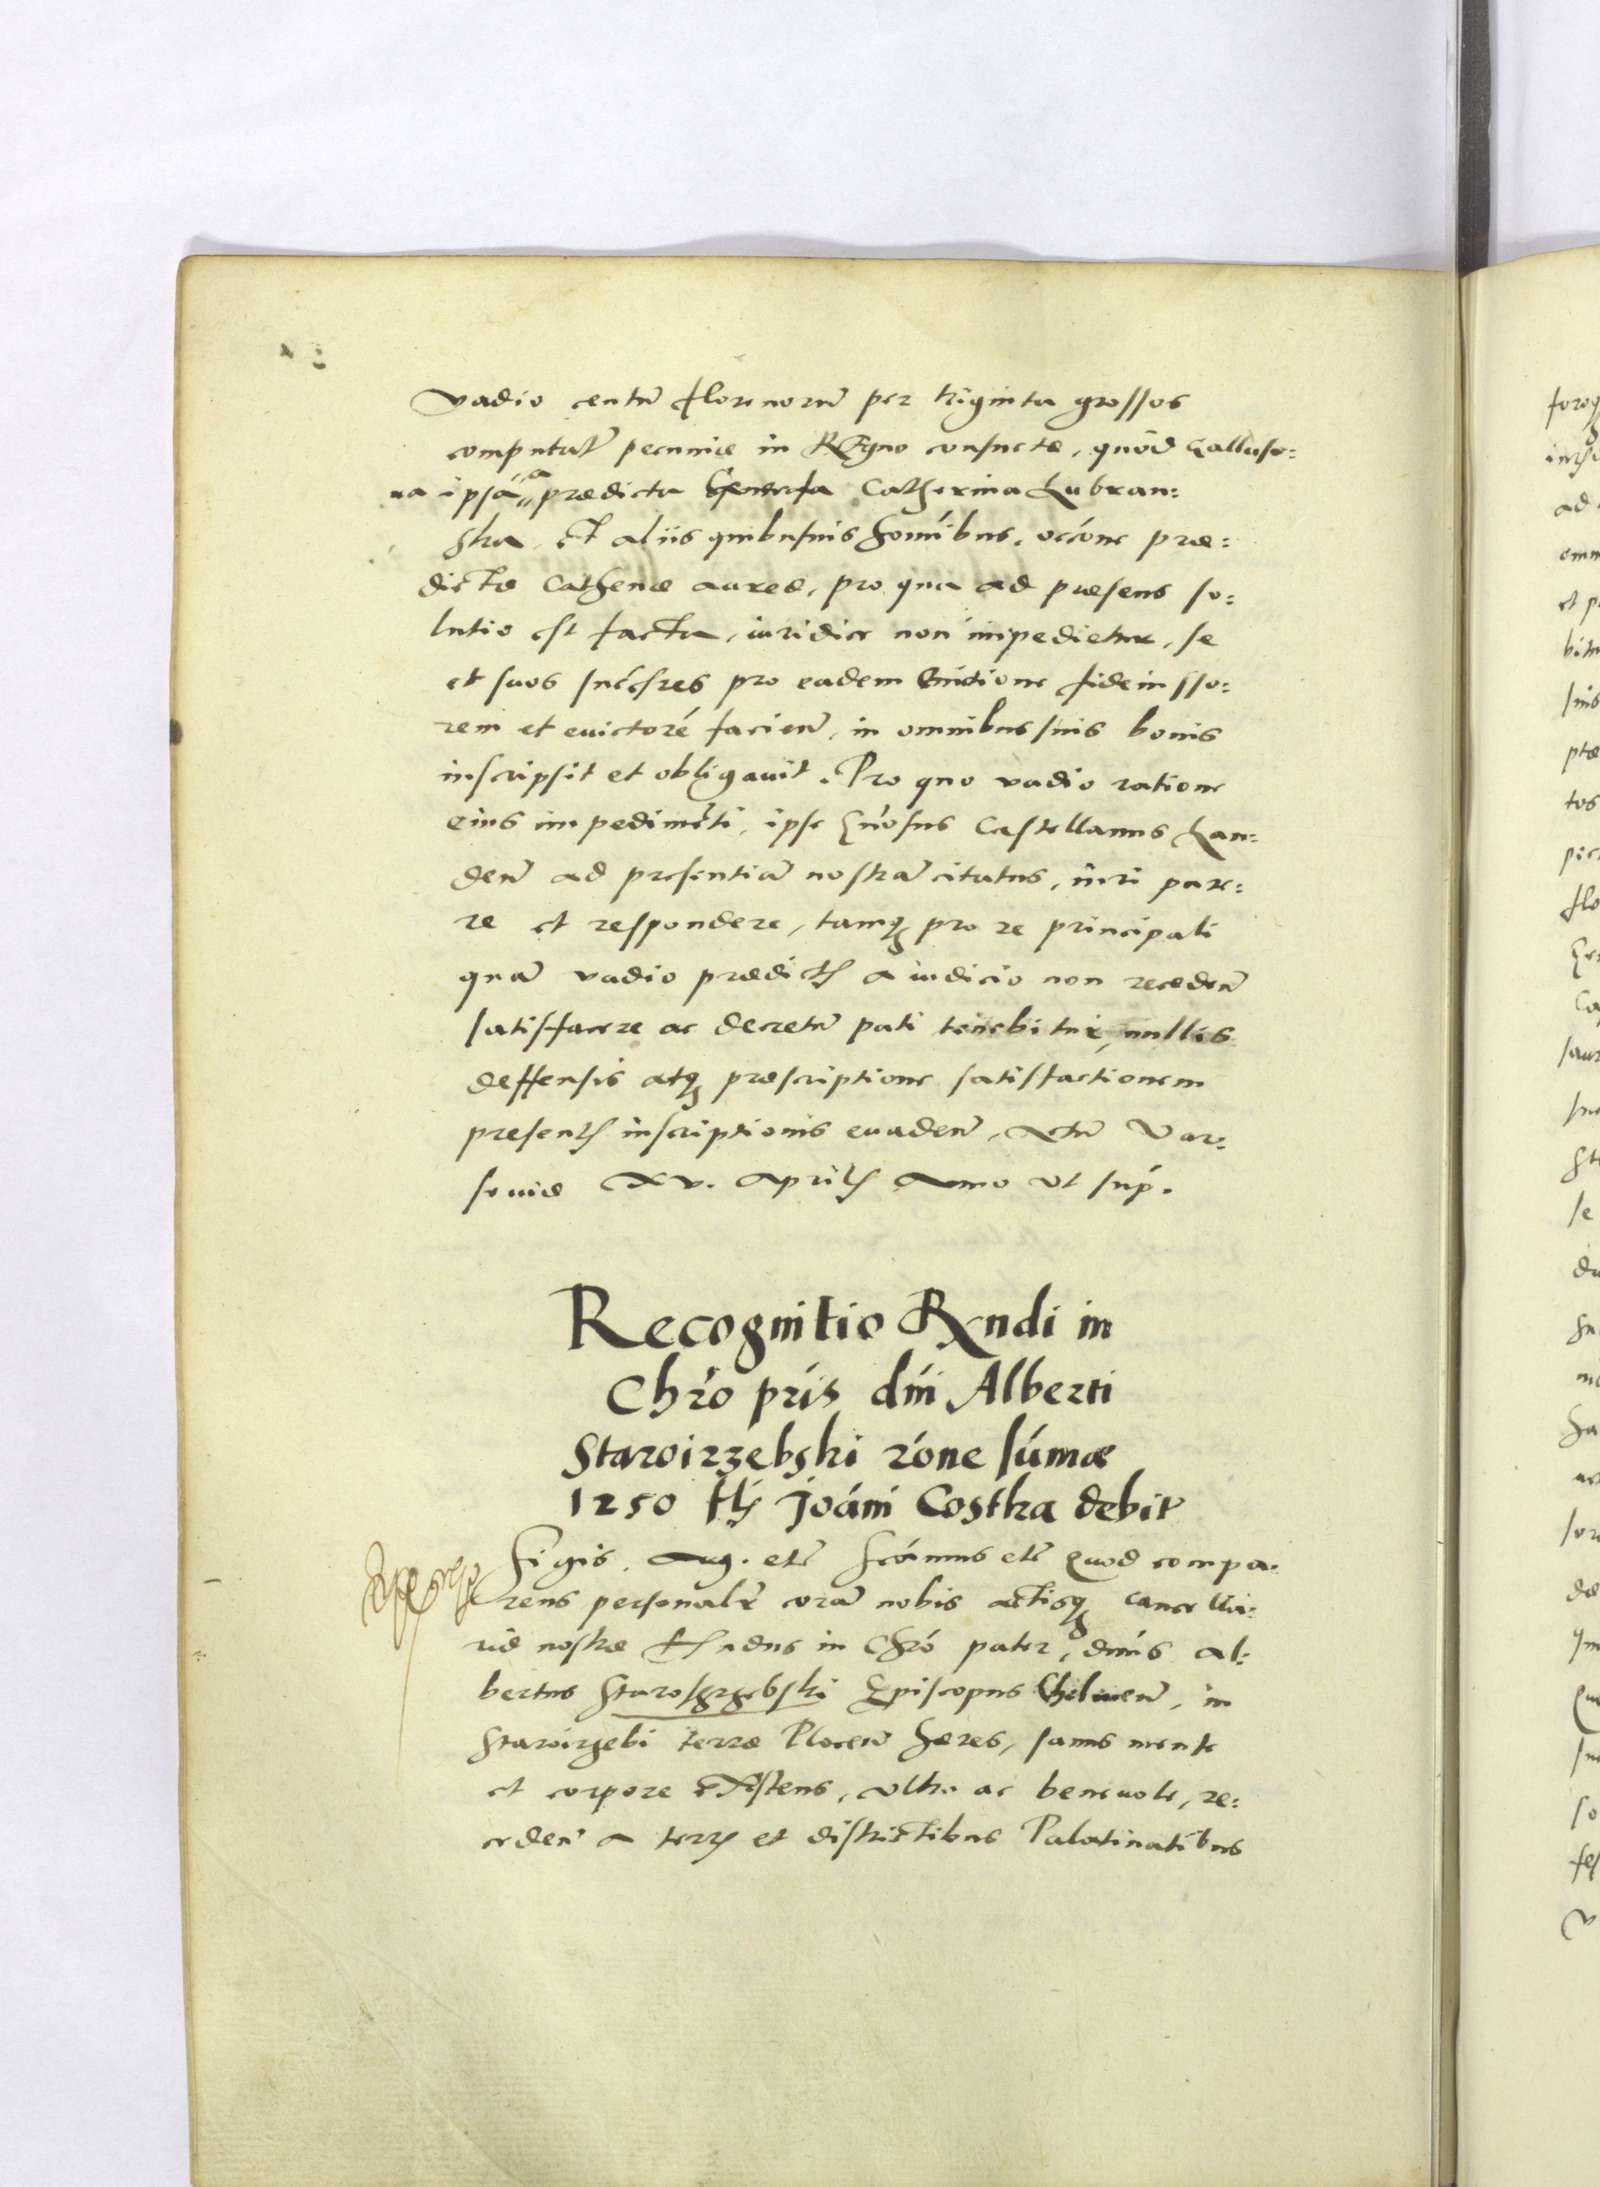 vadio centũ florenorũ per triginta grossos
computat̃ pecuniæ in Regno consuetæ, quòd
ipsa prædicta Catherina Lubran=
ska et aliis quibusuis hoĩnibus, occõne præ=
dictæ Cathenæ aureæ, pro qua ad præsens so=
lutio est facta, iuridice non impedietur, se
et suos succẽsres pro eadem euictione fideiusso=
rem et euictorẽ facienꝭ, in omnibus suis bonis
inscripsit et obligauit. Pro quo vadio ratione
eius impedimẽti, ipse Gñosus Castellanus Lan=
denꝭ ad presentiã nostrã citatus, iuri pare=
re et respondere, tamqꝫ pro re principali
quã vadio prædictꝭ a iudicio non recedenꝭ
satisfacere ac decretũ pati tenebitur, nullis
deffensis atqꝫ præscriptione satisfactionem
presentꝭ inscriptionis euadenꝭ, Actũ Var=
souiæ XV. Aprilꝭ Anno ut sup̃.
Recognitio Rxndi in
Chr̃o pr̃is dñi Alberti
Staroirzebski rõne sũmæ
1250 flꝭ Joãni Costka debit̃
Sigis. Aug. etc̃ Sc̃amus etc̃ Quod compa=
rens personalr̃ corã nobis actisqꝫ cancella=
riæ nostræ Rndus in Chr̃o pater, dñus Al=
bertus Staroszrzebski Episcopus Chelmenꝭ, in
Staroirzebi terræ Plocenꝭ hæres, sanus mente
et corpore existens, ultro ac beneuole, re=
cedenꝭ a terrꝭ et districtibus Palatinatibus